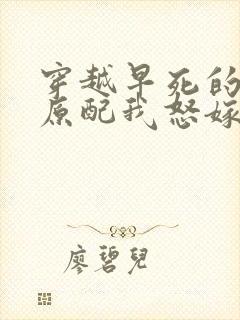 穿越早死的
原配我怒嫁
廖碧兒